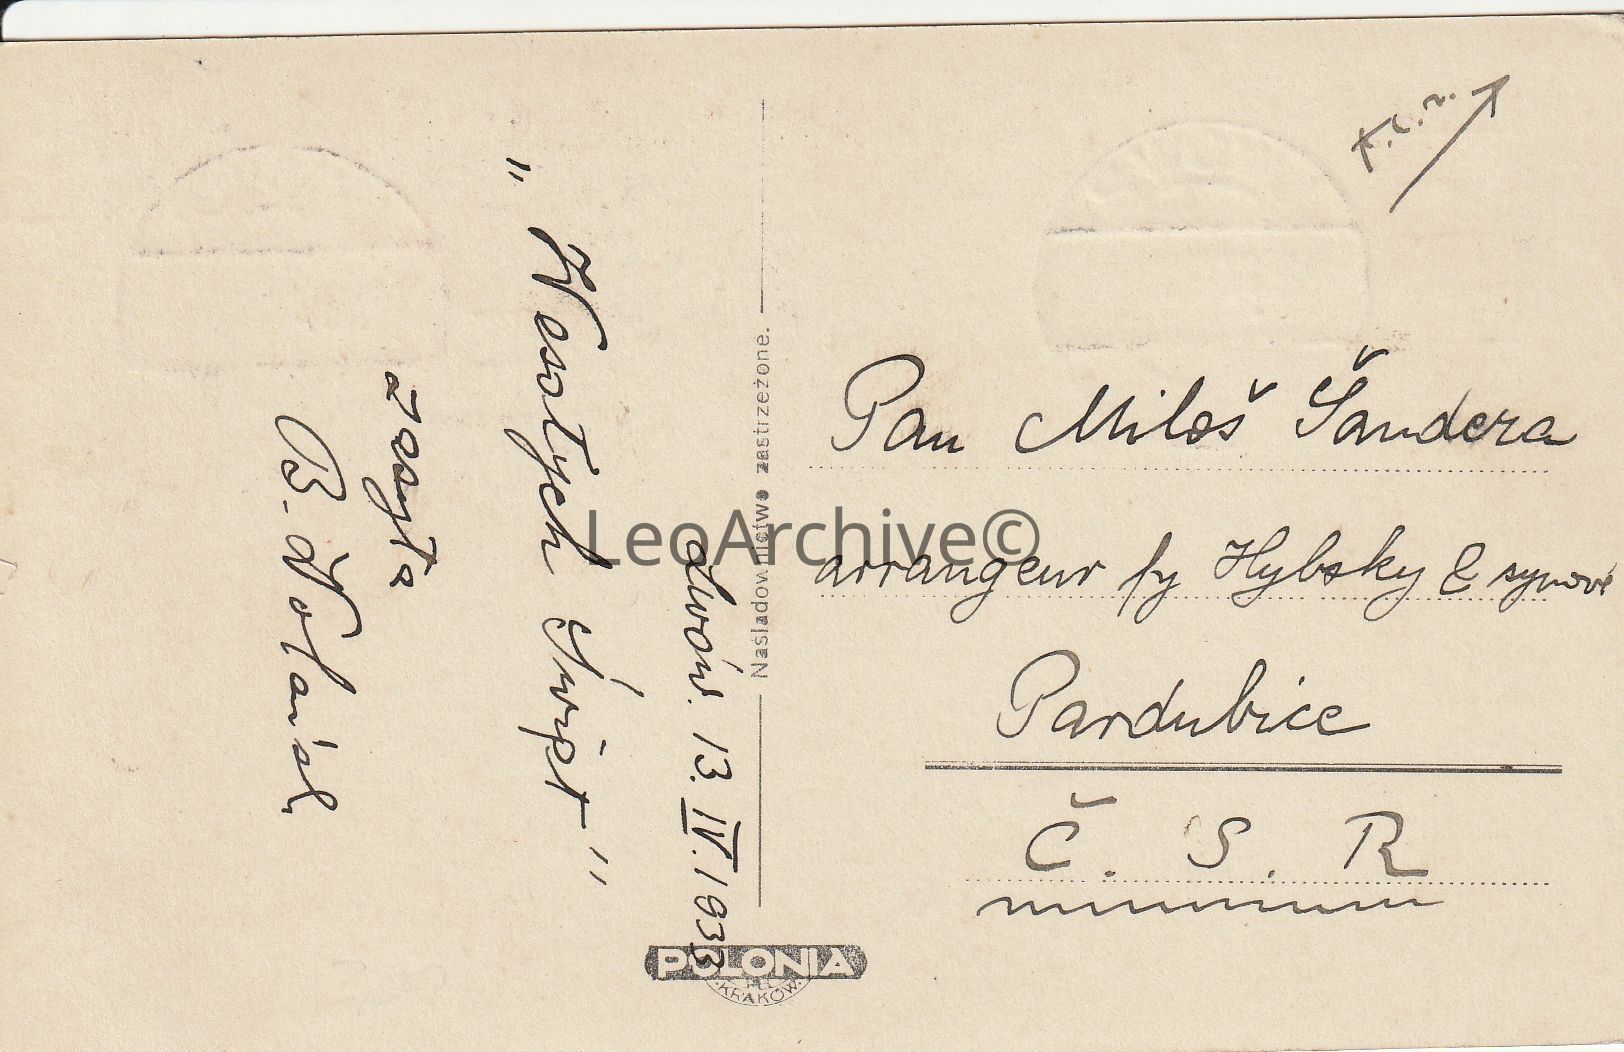 Lwów. 13. IV. 1933
„Wesołych Świąt"
zasyła
B.
Nasladownictwo zastrzeżone.
Pan Miloš Šandera
arrangeur fy Hybsky & synové
Pardubice
Č. S. R
POLONIA
KRAKÓW
LeoArchive©